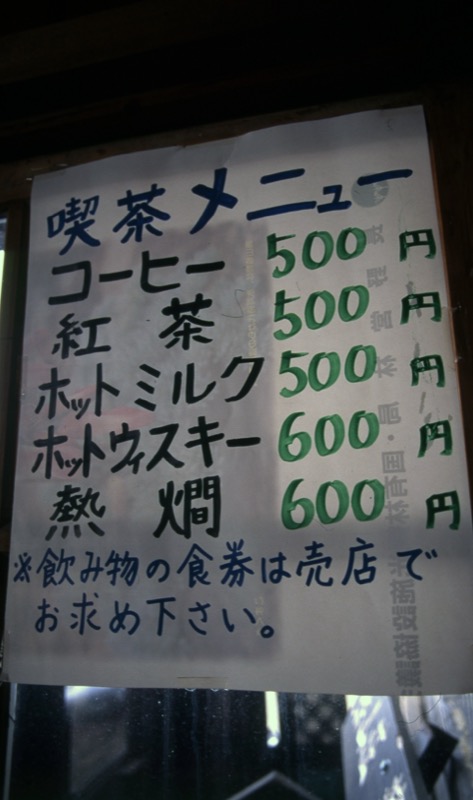 喫茶メニュー
コーヒー 500 円
紅 茶 500 円
ホットミルク 500 円
ホットウィスキー 600 円
熱 燗 600 円
※飲み物の食券は売店で
お求め下さい。